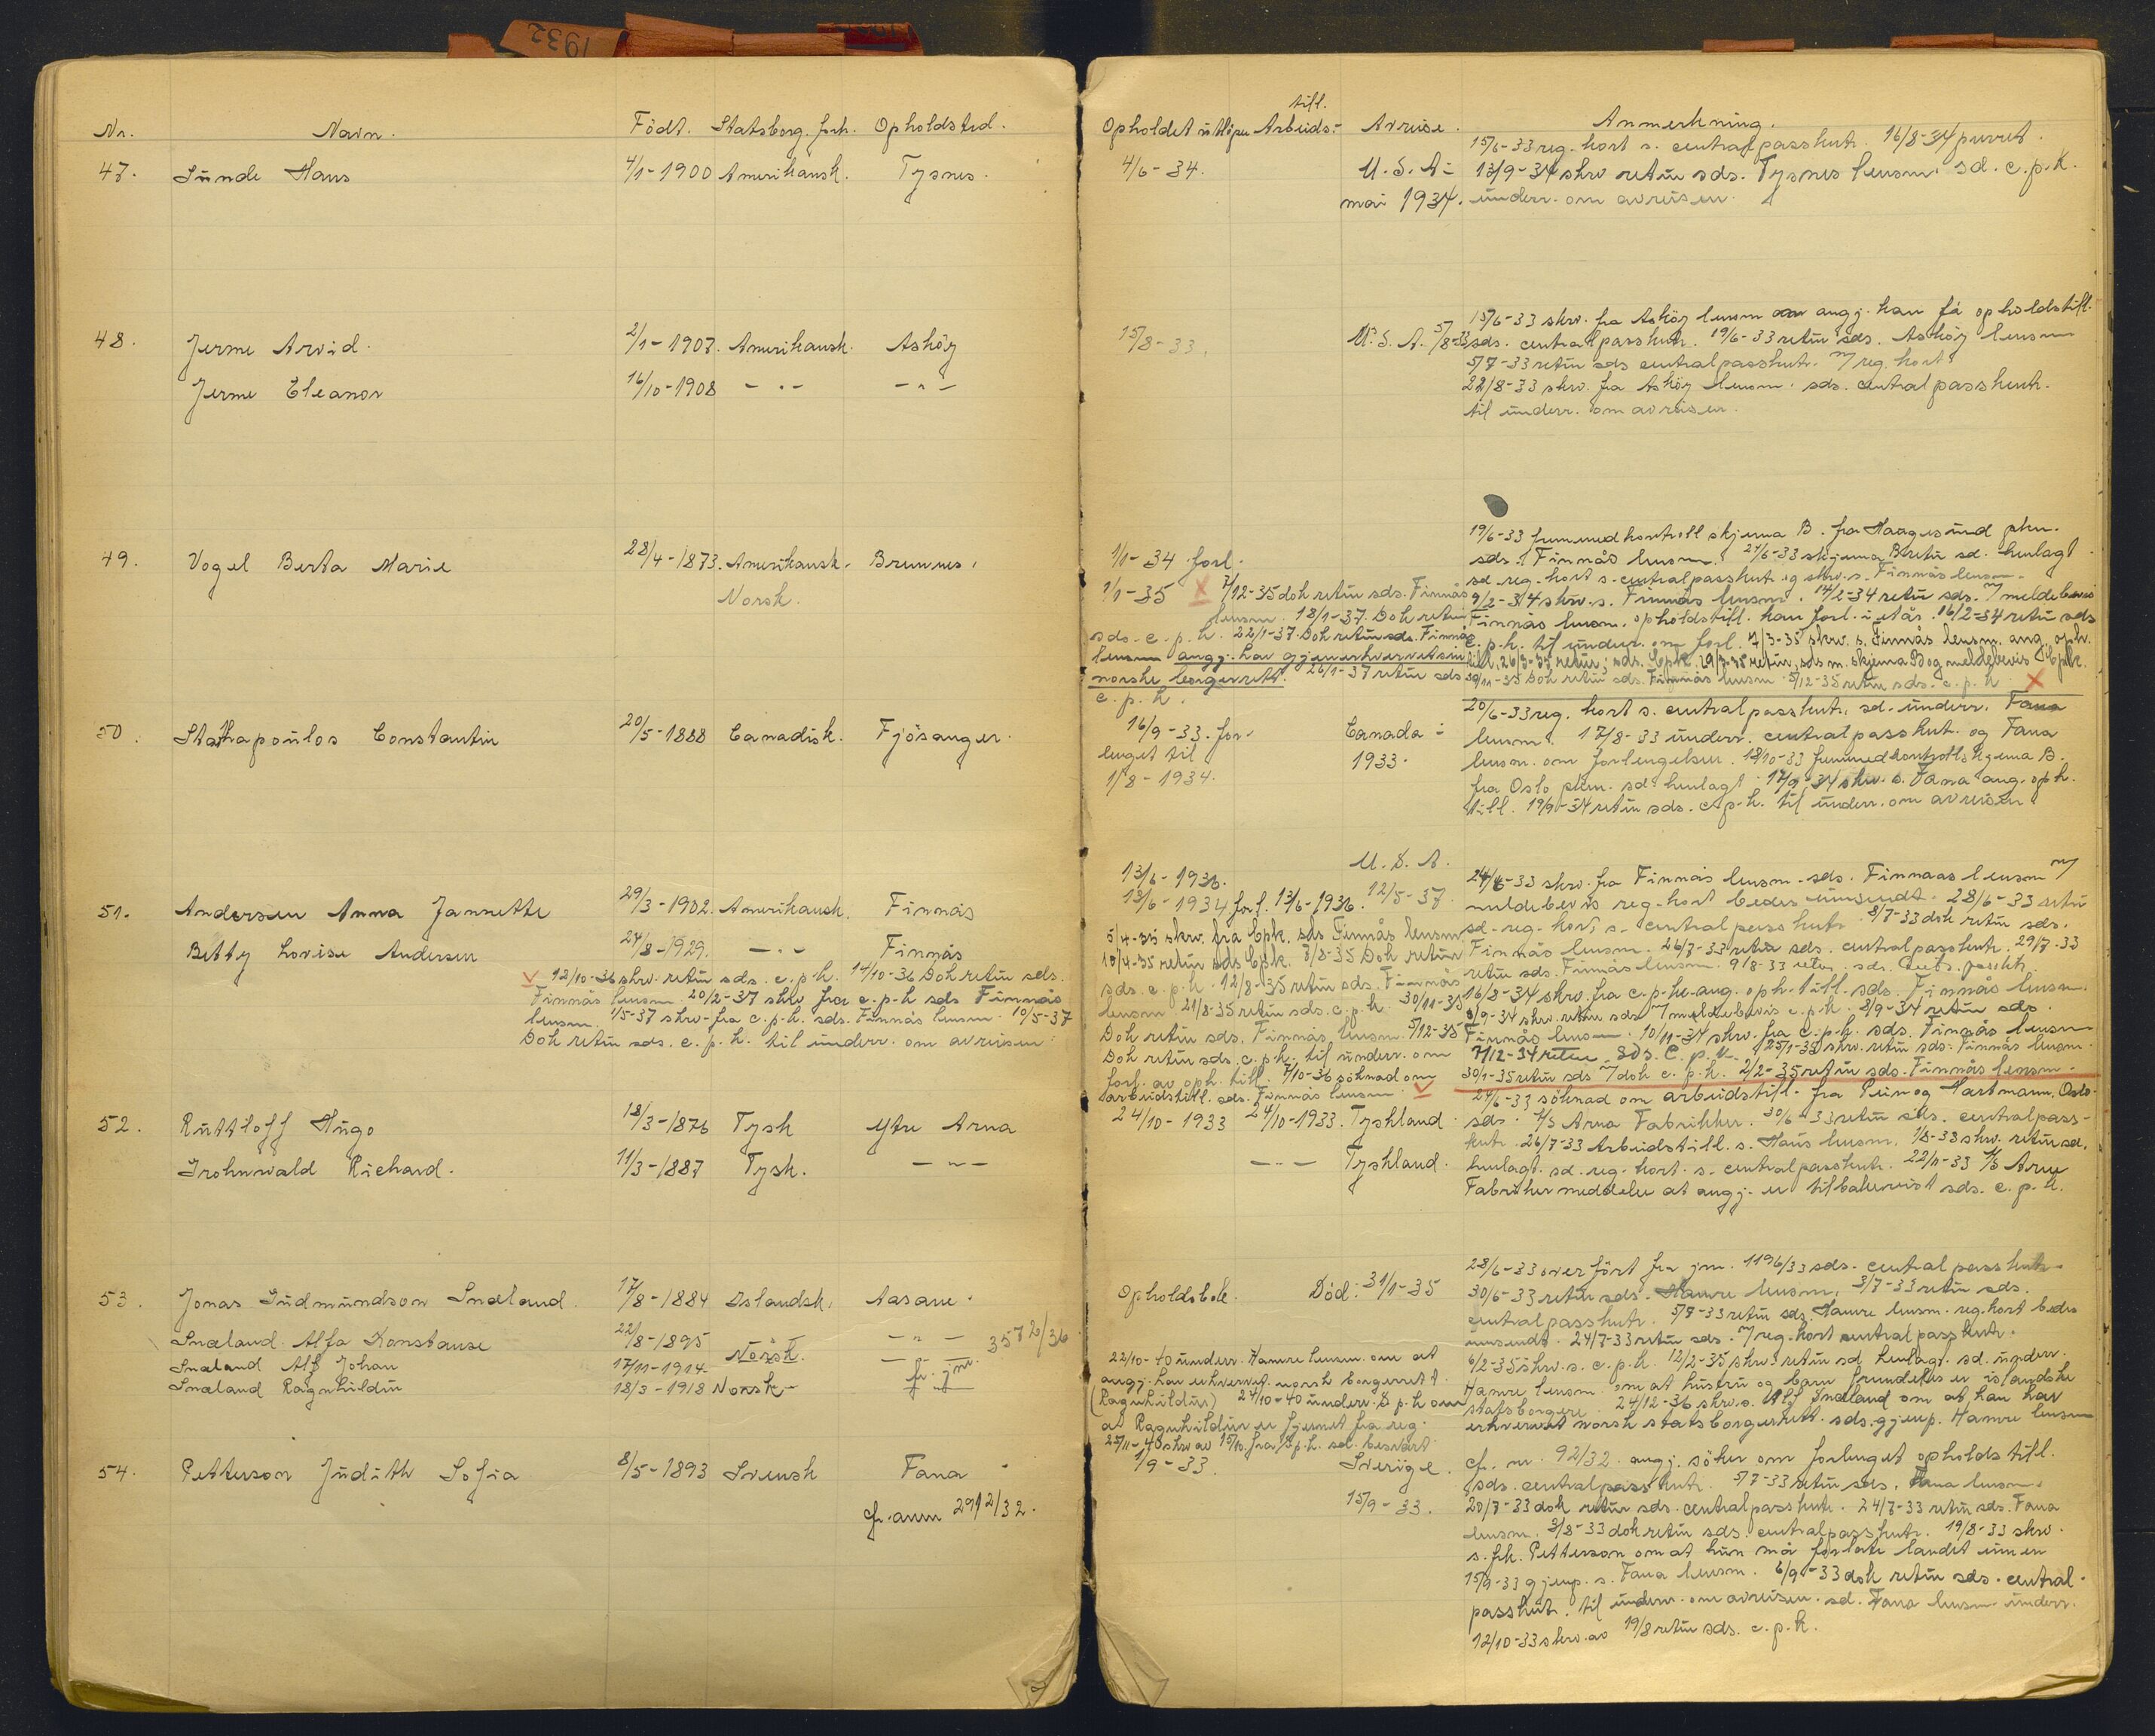 1932
Nr. Navn. Födt. Statsborg. forh. Opholdsted.
47. Sunde Hans 4/1-1900 Amerikansk. Tysnes.
48. Jerme Arvid. 2/1-1907. Amerikansk. Asköy
Jerme Eleanor 16/10-1908 -"- -"-
49. Vogel Berta Marie 28/4-1873. Amerikansk. Bremnes.
Norsk.
50. Stathapoulos Constantin 20/5-1888 Canadisk. Fjösanger.
51. Andersen Anna Jannette 29/3-1902. Amerikansk. Finnås
Betty Lovise Andersen 24/8-1929. -"- Finnås
V 12/10-36 skrv. retur sds. c.p.k. 14/10-36 Dok retur sds.
Finnås lensm. 20/2-37 skrv fra c.p.k sds Finnås
lensm. 1/5-37 skrv-fra c.p.k. sds. Finnås lensm. 10/5-37
Dok retur sds. c.p.k. til underr. om avreisen.
52. Ruttloff Hugo 18/3-1876 Tysk Ytre Arna
Grohnwald Richard. 11/3-1887 Tysk. -"-
53. Jonas Gudmundson Snæland. 17/8-1884 Islandsk. Aasane.
Snæland. Alfa Konstanse 22/8-1895 -"- 3572/36
Snæland Alf Johan 17/11-1914 Norsk. fr. jnr.
Snæland Ragnhildur 18/3-1918 Norsk -"-
54. Petterson Judith Sofia 8/5-1893 Svensk Fana
cfr. anm 2912/32.
till.
Opholdet utlöper Arbeids- Avreise. Anmerkning.
15/6-33 reg. kort s. centralpasskntr. 16/8-34 purret.
4/6-34. U.S.A- 13/9-34 skrv retur sds. Tysnes lensm. sd. c.p.k.
mai 1934. underr. om avreisen.
15/6-33 skrv. fra Asköy lensm om angj. kan få opholdstill.
15/8-33. U.S.A. 5/8-33 sds. centralpasskntr. 19/6-33 retur sds. Asköy lensm
5/7-33 retur sds centralpasskntr. m/ reg. kort
22/8-33 skrv. fra Asköy lensm. sds. centralpasskntr.
til underr. om avreisen.
19/6-33 fremmedkontroll skjema B. fra Haugesund pkm.
1/1-34 forl. sds. Finnås lensm. 27/6-33 skjema B retur sd. henlagt.
sd. reg. kort s. centralpasskntr. og skrv. s. Finnås lensm.
1/1-35 X 7/12-35 dok retur sds. Finnås 9/2-34 skrv. s. Finnås lensm. 14/2-34 retur sds. m/ meldebevis
lensm. 18/1-37. Dok retur Finnås lensm. opholdstill. kan forl. i et år. 16/2-34 retur sds
sds. c.p.k. 22/1-37. Dok retur sds. Finnås c.p.k. til underr. om forl. 7/3-35 skrv. s. Finnås lensm. ang. oph.
lensm angj. har gjenerhvervet sin till. 26/3-35 retur, sds. Cpk. 29/3-35 retur, sds m. skjema B og meldebevis Cpk.
norske borgerrett. 26/1-37 retur sds 30/11-35 Dok retur sds. Finnås lensm. 5/12-35 retur sds. c.p.k X
c.p.k.
20/6-33 reg. kort s. centralpasskntr. sd. underr. Fana
16/9-33. for- Canada - lensm. 17/8-33 underr. centralpasskntr. og Fana
lenget til 1933. lensm. om forlengelsen. 18/10-33 fremmedkontrollskjema B.
1/8-1934. fra Oslo pkm. sd. henlagt. 17/9-34 skrv. s. Fana ang. oph.
till. 19/9-34 retur sds. c.p.k. til underr. om avreisen
U.S.A.
13/6-1936. 24/6-33 skrv. fra Finnås lensm. sds. Finnaas lensm m/
13/6-1934 forl. 13/6-1936. 12/5-37 meldebevis reg-kort bedes innsendt. 28/6-33 retur
5/4-35 skrv. fra Cpk. sds Finnås lensm. sd-reg-kort s. centralpasskntr. 8/7-33 dok retur sds.
10/4-35 retur sds Cpk. 8/8-35 Dok retur Finnås lensm. 26/7-33 retur sds. centralpasskntr. 29/7-33
sds. c.p.k. 12/8-35 retur sds. Finnås retur sds. Finnås lensm. 9/8-33 retur. sds. Centr. passktr.
lensm 21/8-35 retur sds. c.p.k. 30/11-35 16/8-34 skrv. fra c.p.k. ang. oph. till. sds. Finnås lensm.
Dok retur sds. Finnås lensm. 5/12-35 8/9-34 skrv. retur sds. m/ meldebevis c.p.k. 8/9-34 retur sds.
Dok retur sds. c.p.k. til underr. om Finnås lensm. 10/11-34 skrv. fra c.p.k. sds. Finnås lensm
forl. av oph. till. 7/10-36 söknad om 7/12-34 retur sds. C.p.k. 25/1-35 skrv. retur sds. Finnås lensm.
arbeidstill. sds. Finnås lensm V 30/1-35 retur sds m/ dok c.p.k. 2/2-35 retur sds. Finnås lensm.
24/6-33 söknad om arbeidstill. fra Peen og Hartmann, Oslo.
24/10-1933 24/10-1933. Tyskland sds. A/S Arna Fabrikker. 30/6-33 retur sds. centralpass-
kntr. 26/7-33 Arbeidstill. s. Haus lensm. 1/8-33 skrv. retur sd.
-"- Tyskland. henlagt. sd. reg. kort. s. centralpasskntr. 22/11-33 A/S Arne
Fabriker meddeler at angj. er tilbakereist sds. c.p.k.
28/6-33 overfört fra jnr. 1196/33 sds. centralpasskntr.
Opholdsbok. Död: 31/1-35 30/6-33 retur sds. Hamre lensm. 3/7-33 retur sds.
centralpasskntr. 5/7-33 retur sds. Hamre lensm. reg. kort bedes
innsendt. 24/7-33 retur sds. m/ reg. kort centralpasskntr.
22/10-40 underr. Hamre lensm. om at 6/2-35 skrv. s. c.p.k. 12/2-35 skrv. retur sd henlagt. sd. underr.
angj. har erhvervet norsk borgerrett. Hamre lensm. om at hustru og barn fremdeles er islandske
(Ragnhildur) 24/10-40 underr. S.p.k om statsborgere. 24/12-36 skrv. s. Alf Snæland om at han har
at Ragnhildur er fjernet fra reg. erhvervet norsk statsborgerrett. sds. gjenp. Hamre lensm
25/11-40 skrv av 15/10. fra S.p.k. sd. besvart.
1/9-33. Sverige. cfr. nr. 92/32. angj. söker om forlenget opholdstill.
sds. centralpasskntr. 5/7-33 retur sds. Fana lensm.
15/9-33. 20/7-33 dok retur sds. centralpasskntr. 24/7-33 retur sds. Fana
lensm. 3/8-33 dok retur sds. centralpasskntr. 19/8-33 skrv.
s. frk. Petterson om at hun må forlate landet innen
15/9-33 gjenp. s. Fana lensm. 6/9-33 dok retur sds. central-
passkntr. til underr. om avreisen. sd. Fana lensm underr.
12/10-33 skrv. av 19/8 retur sds. c.p.k.